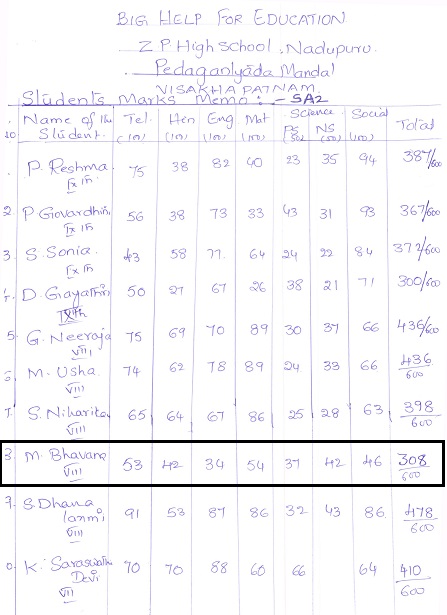 BIG HELP FOR EDUCATION
Z P High School, Nadupuru.
Pedagantyada Mandal
VISAKHA PATNAM.
Students Marks Memo :- SA2
Name of the Student. Tel. (100) Hen (100) Eng (100) Mat (100) Science PS (50) NS (50) Social (100) Total
P. Reshma IX th 75 38 82 40 23 35 94 387/600
2. P Govardhini IX th 56 38 73 33 43 31 93 367/600
3. S. Sonia IX th 43 58 77. 64 24 22 84 372/600
D. Gayathiri IXth 50 27 67 26 38 21 71 300/600
5. G. Neeraja VIII 75 69 70 89 30 37 66 436/600
M. Usha VIII 74 62 78 89 24 33 66 436/600
7. S. Niharika VIII 65 64 67 86 25 28 63 398/600
M. Bhavane VIII 53 42 34 54 37 42 46 308/600
9. S. Dhana laxmi VIII 91 53 87 86 32 43 86. 478/600
K. Saraswathi Devi VII 70 70 88 60 66 64 410/600